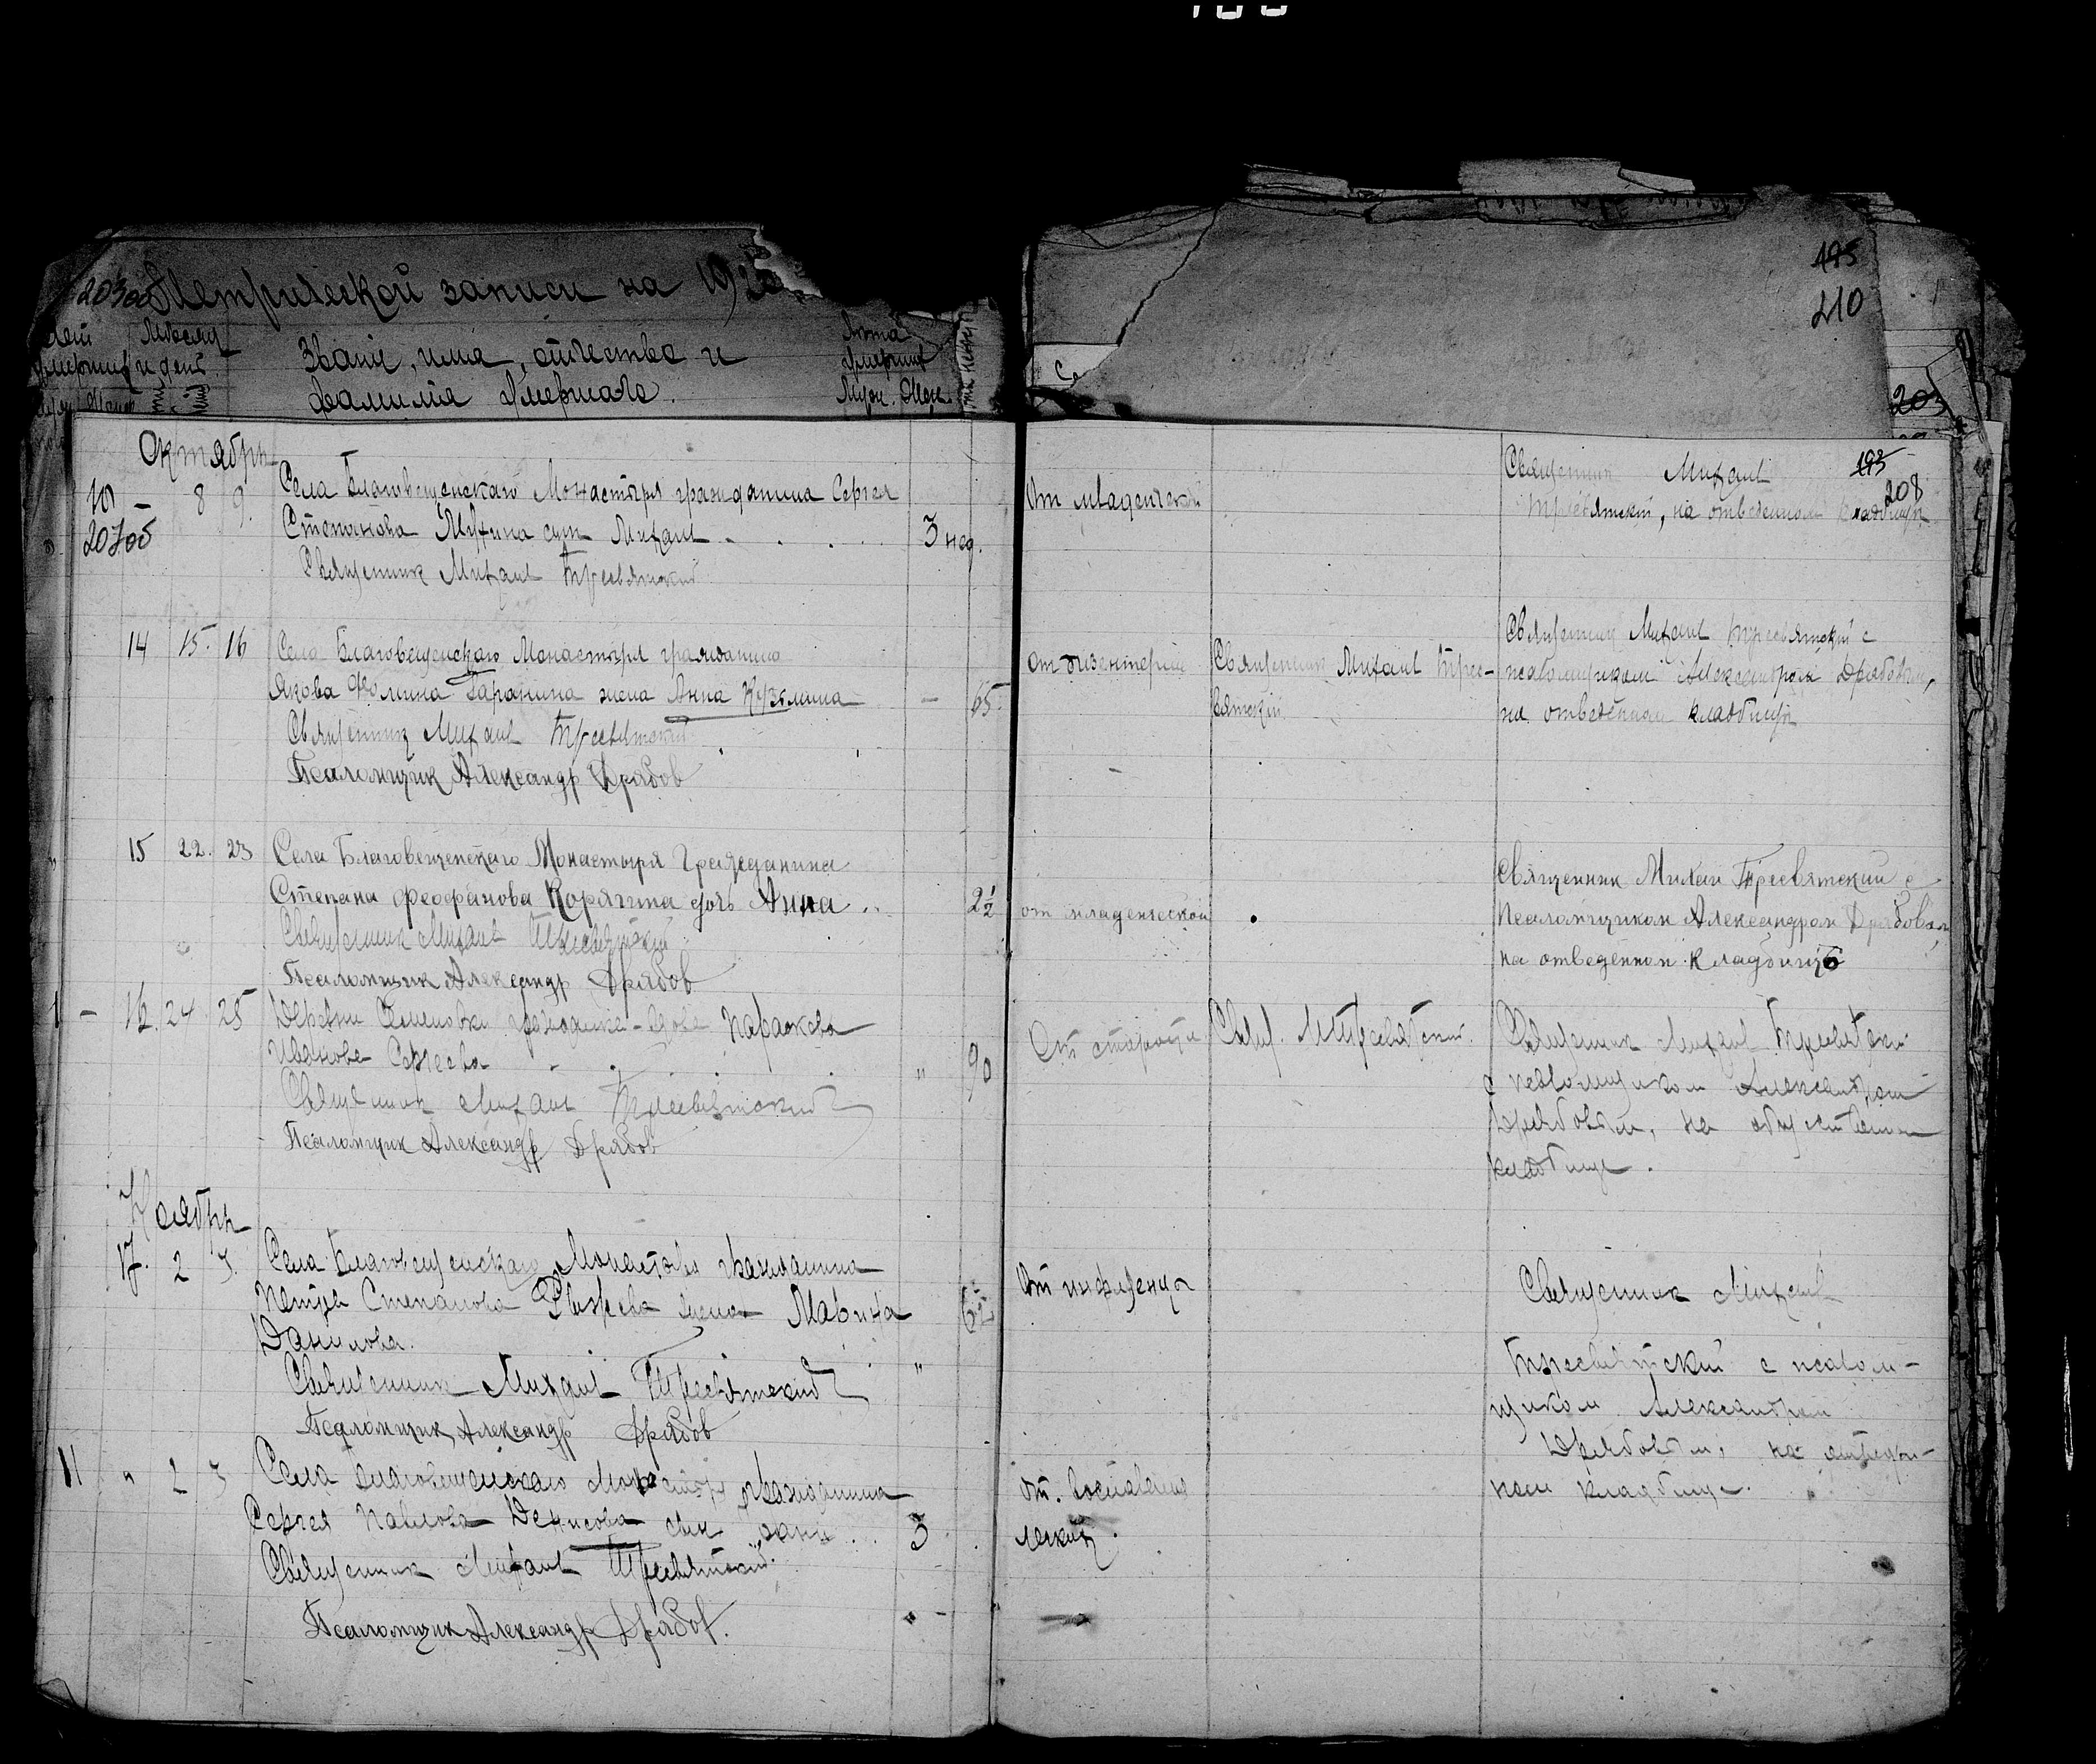 203об Метрической записи на 192
Месяц
и день
Звание, имя, отчество и
фамилия умершаго.
Лета
умерш
Муж. Жен.
195
210
203
Октябрь
10 - 8 9. Села Благовещенскаго Монастыря гражданина Сергея
207об Степанова Мухина сын Михаил - . . . 3 нед.
Священник Михаил Тресвятский
От младенческой
Священник Михаил
Тресвятский, на отведенном кладбище
195
208
14 15. 16 Села Благовещенскаго Монастыря гражданина
Якова Фомина Гаранина жена Анна Кузьмина - 65.
Священник Михаил Тресвятский
Псаломщик Александр Дрябов
от дизентерии
Священник Михаил Трес-
вятский
Священник Михаил Тресвятский с
псаломщиком Александром Дрябовым,
на отведенном кладбище
15 22. 23 Села Благовещенского Монастыря Гражданина
Степана Феофанова Корягина дочь Анна .. 2 1/2
Священник Михаил Тресвятский
Псаломщик Александр Дрябов
от младенческой
Священник Михаил Тресвятский с
Псаломщиком Александром Дрябовым,
на отведенном кладбище
1 - 16. 24 25 Деревни Семеновки гражданка-вдова Параскева
Иванова Сергеева - . . . . " 90
Священник Михаил Тресвятский
Псаломщик Александр Дрябов
От старости
Свящ. М Тресвятский.
Священник Михаил Тресвятский
с псаломщиком Александром
Дрябовым, на
кладбище.
Ноябрь
17. 2 3. Села Благовещенскаго Монастыря гражданина
Петра Степанова Рыжева жена Мавина
Данилова.
Священник Михаил Тресвятский "
Псаломщик Александр Дрябов
От инфлуенца
Священник Михаил
Тресвятский с псалом-
щиком Александром
Дрябовым, на отведен-
ном кладбище.
11 " 2 3 Села Благовещенскаго Монастыря гражданина
Сергея Павлова Денисова сын . . . 3
Священник Михаил Тресвятский.
Псаломщик Александр Дрябов.
от. воспаления
легких.